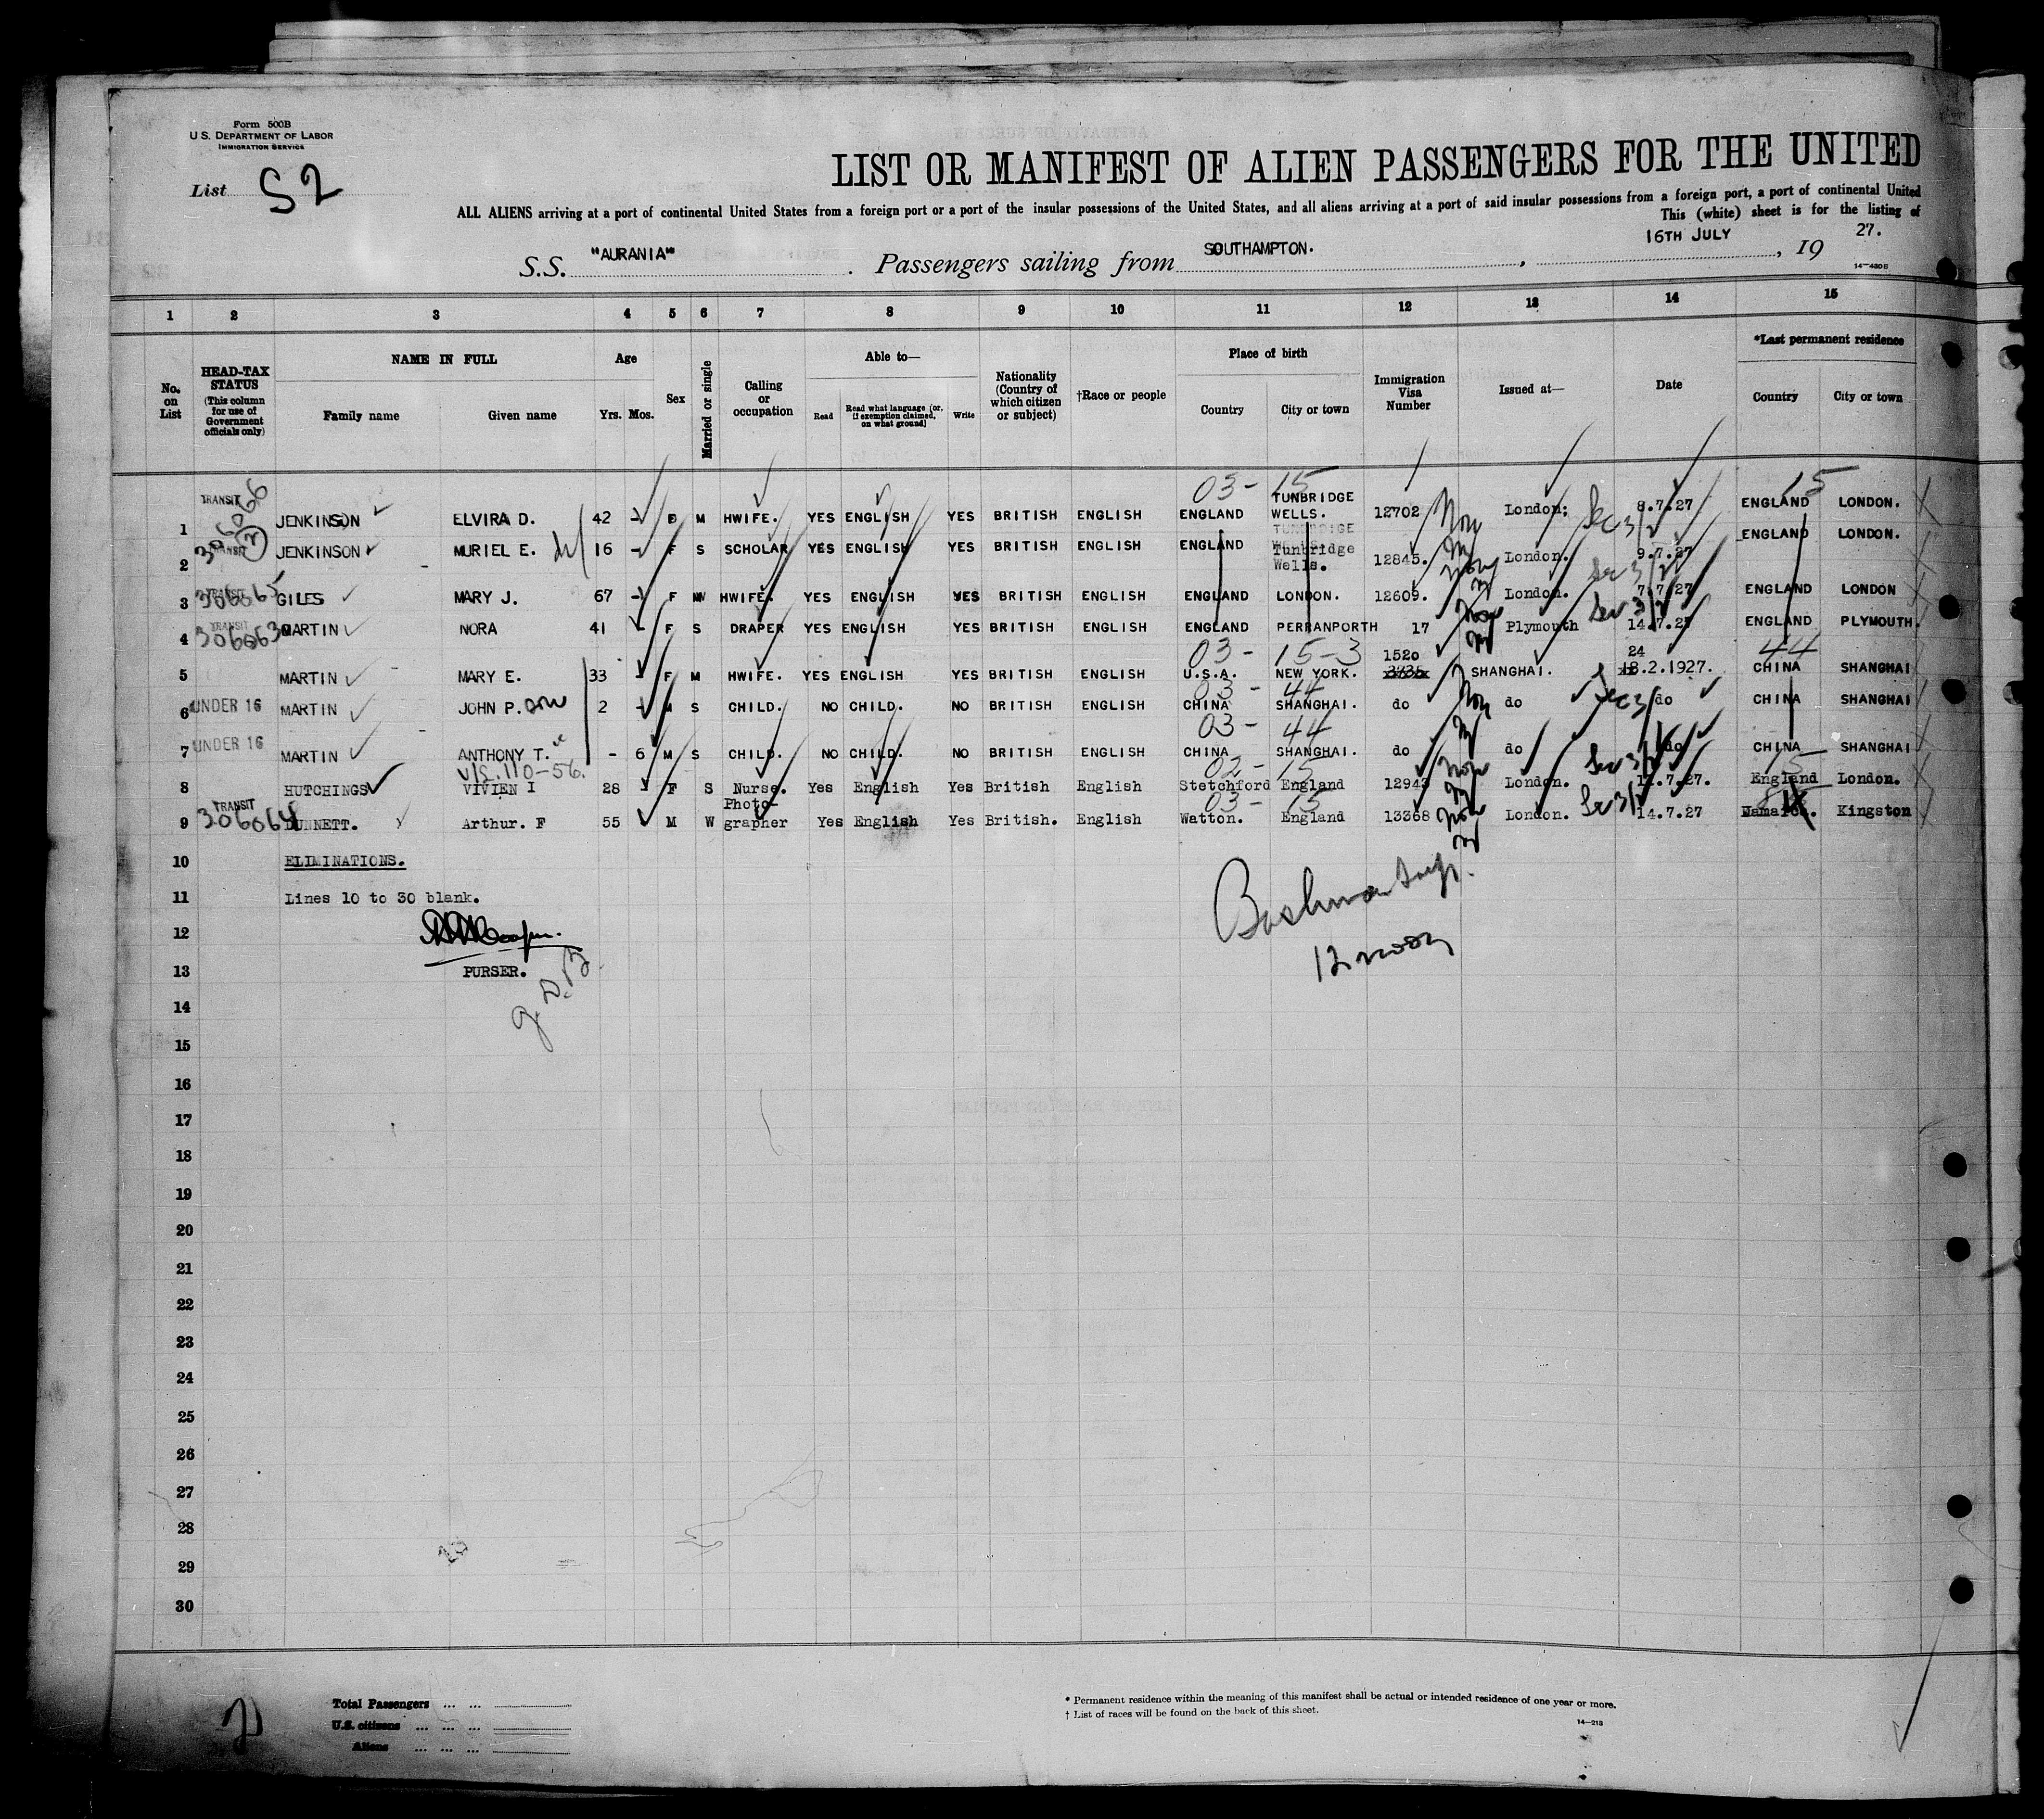 Form 500B
U. S. DEPARTMENT OF LABOR
IMMIGRATION SERVICE
List 52
LIST OR MANIFEST OF ALIEN PASSENGERS FOR THE UNITED
ALL ALIENS arriving at a port of continental United States from a foreign port or a port of the insular possessions of the United States, and all aliens arriving at a port of said insular possessions from a foreign port, a port of continental United
This (white) sheet is for the listing of
S.S. "AURANIA" . Passengers sailing from SOUTHAMPTON. , 16TH JULY , 19 27.
14-430B
1 2 3 4 5 6 7 8 9 10 11 12 13 14 15
No. on List
HEAD-TAX STATUS (This column for use of Government officials only)
NAME IN FULL
Family name Given name
Age
Yrs. Mos.
Sex
Married or single
Calling or occupation
Able to—
Read Read what language (or, if exemption claimed, on what ground) Write
Nationality (Country of which citizen or subject)
†Race or people
Place of birth
Country City or town
Immigration Visa Number
Issued at—
Date
*Last permanent residence
Country City or town
03- 15 15
1 TRANSIT 306066 JENKINSON ELVIRA D. 42 - M HWIFE. YES ENGLISH YES BRITISH ENGLISH ENGLAND TUNBRIDGE WELLS. 12702 London. Sec 3/2 8.7.27 ENGLAND LONDON.
2 TRANSIT JENKINSON MURIEL E. 16 - F S SCHOLAR YES ENGLISH YES BRITISH ENGLISH ENGLAND Tunbridge Wells. 12845. London. 9.7.27 ENGLAND LONDON.
3 TRANSIT 306065 GILES MARY J. 67 - F W HWIFE. YES ENGLISH YES BRITISH ENGLISH ENGLAND LONDON. 12609. London. 7.7.27 ENGLAND LONDON
4 TRANSIT 306063 MARTIN NORA 41 - F S DRAPER YES ENGLISH YES BRITISH ENGLISH ENGLAND PERRANPORTH 17 Plymouth 14.7.27 ENGLAND PLYMOUTH.
03- 15-3 1520 24 44
5 MARTIN MARY E. 33 - F M HWIFE. YES ENGLISH YES BRITISH ENGLISH U.S.A. NEW YORK. SHANGHAI. 18.2.1927. CHINA SHANGHAI
03- 44
6 UNDER 16 MARTIN JOHN P. 2 - M S CHILD. NO CHILD. NO BRITISH ENGLISH CHINA SHANGHAI. do do Sec 3/ do CHINA SHANGHAI
03- 44
7 UNDER 16 MARTIN ANTHONY T. - 6 M S CHILD. NO CHILD. NO BRITISH ENGLISH CHINA SHANGHAI. do do do CHINA SHANGHAI
02- 15 15
8 HUTCHINGS VIVIEN I 28 - F S Nurse. Yes English Yes British English Stetchford England 12943 London. Sec 3/ .7.27. England London.
03- 15
9 TRANSIT 306064 DUNNETT. Arthur. F 55 M W Photo-grapher Yes English Yes British. English Watton. England 13368 London. Sec 3/ 14.7.27 Jamaica. Kingston
10 ELIMINATIONS.
11 Lines 10 to 30 blank.
12
13 PURSER.
12 noon
14
15
16
17
18
19
20
21
22
23
24
25
26
27
28
29
30
Total Passengers ... ...
U.S. citizens ... ... ...
Aliens ... ... ...
* Permanent residence within the meaning of this manifest shall be actual or intended residence of one year or more.
† List of races will be found on the back of this sheet.
14-213